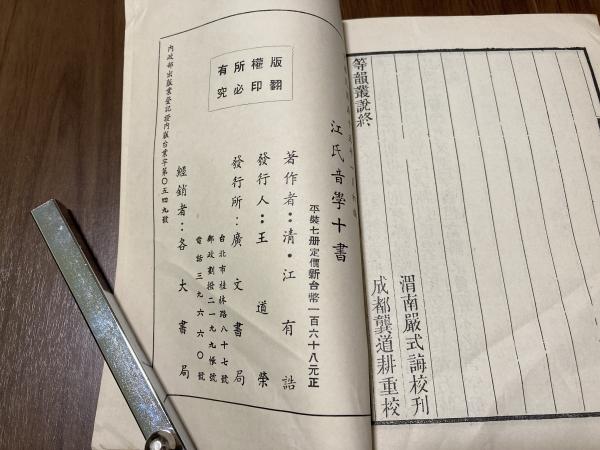 等韻叢說終
渭南嚴式誨校刊
成都龔道耕重校
江氏音學十書
平裝七册定價新台幣一百六十八元正
著作者：清・江有誥
發行人：王道榮
發行所：廣文書局
台北市桂林路八十七號
郵政劃撥二一九九帳號
電話三九六六〇號
經銷者：各大書局
版權所有
翻印必究
內政部出版業登記證內版台業字第〇五四九號